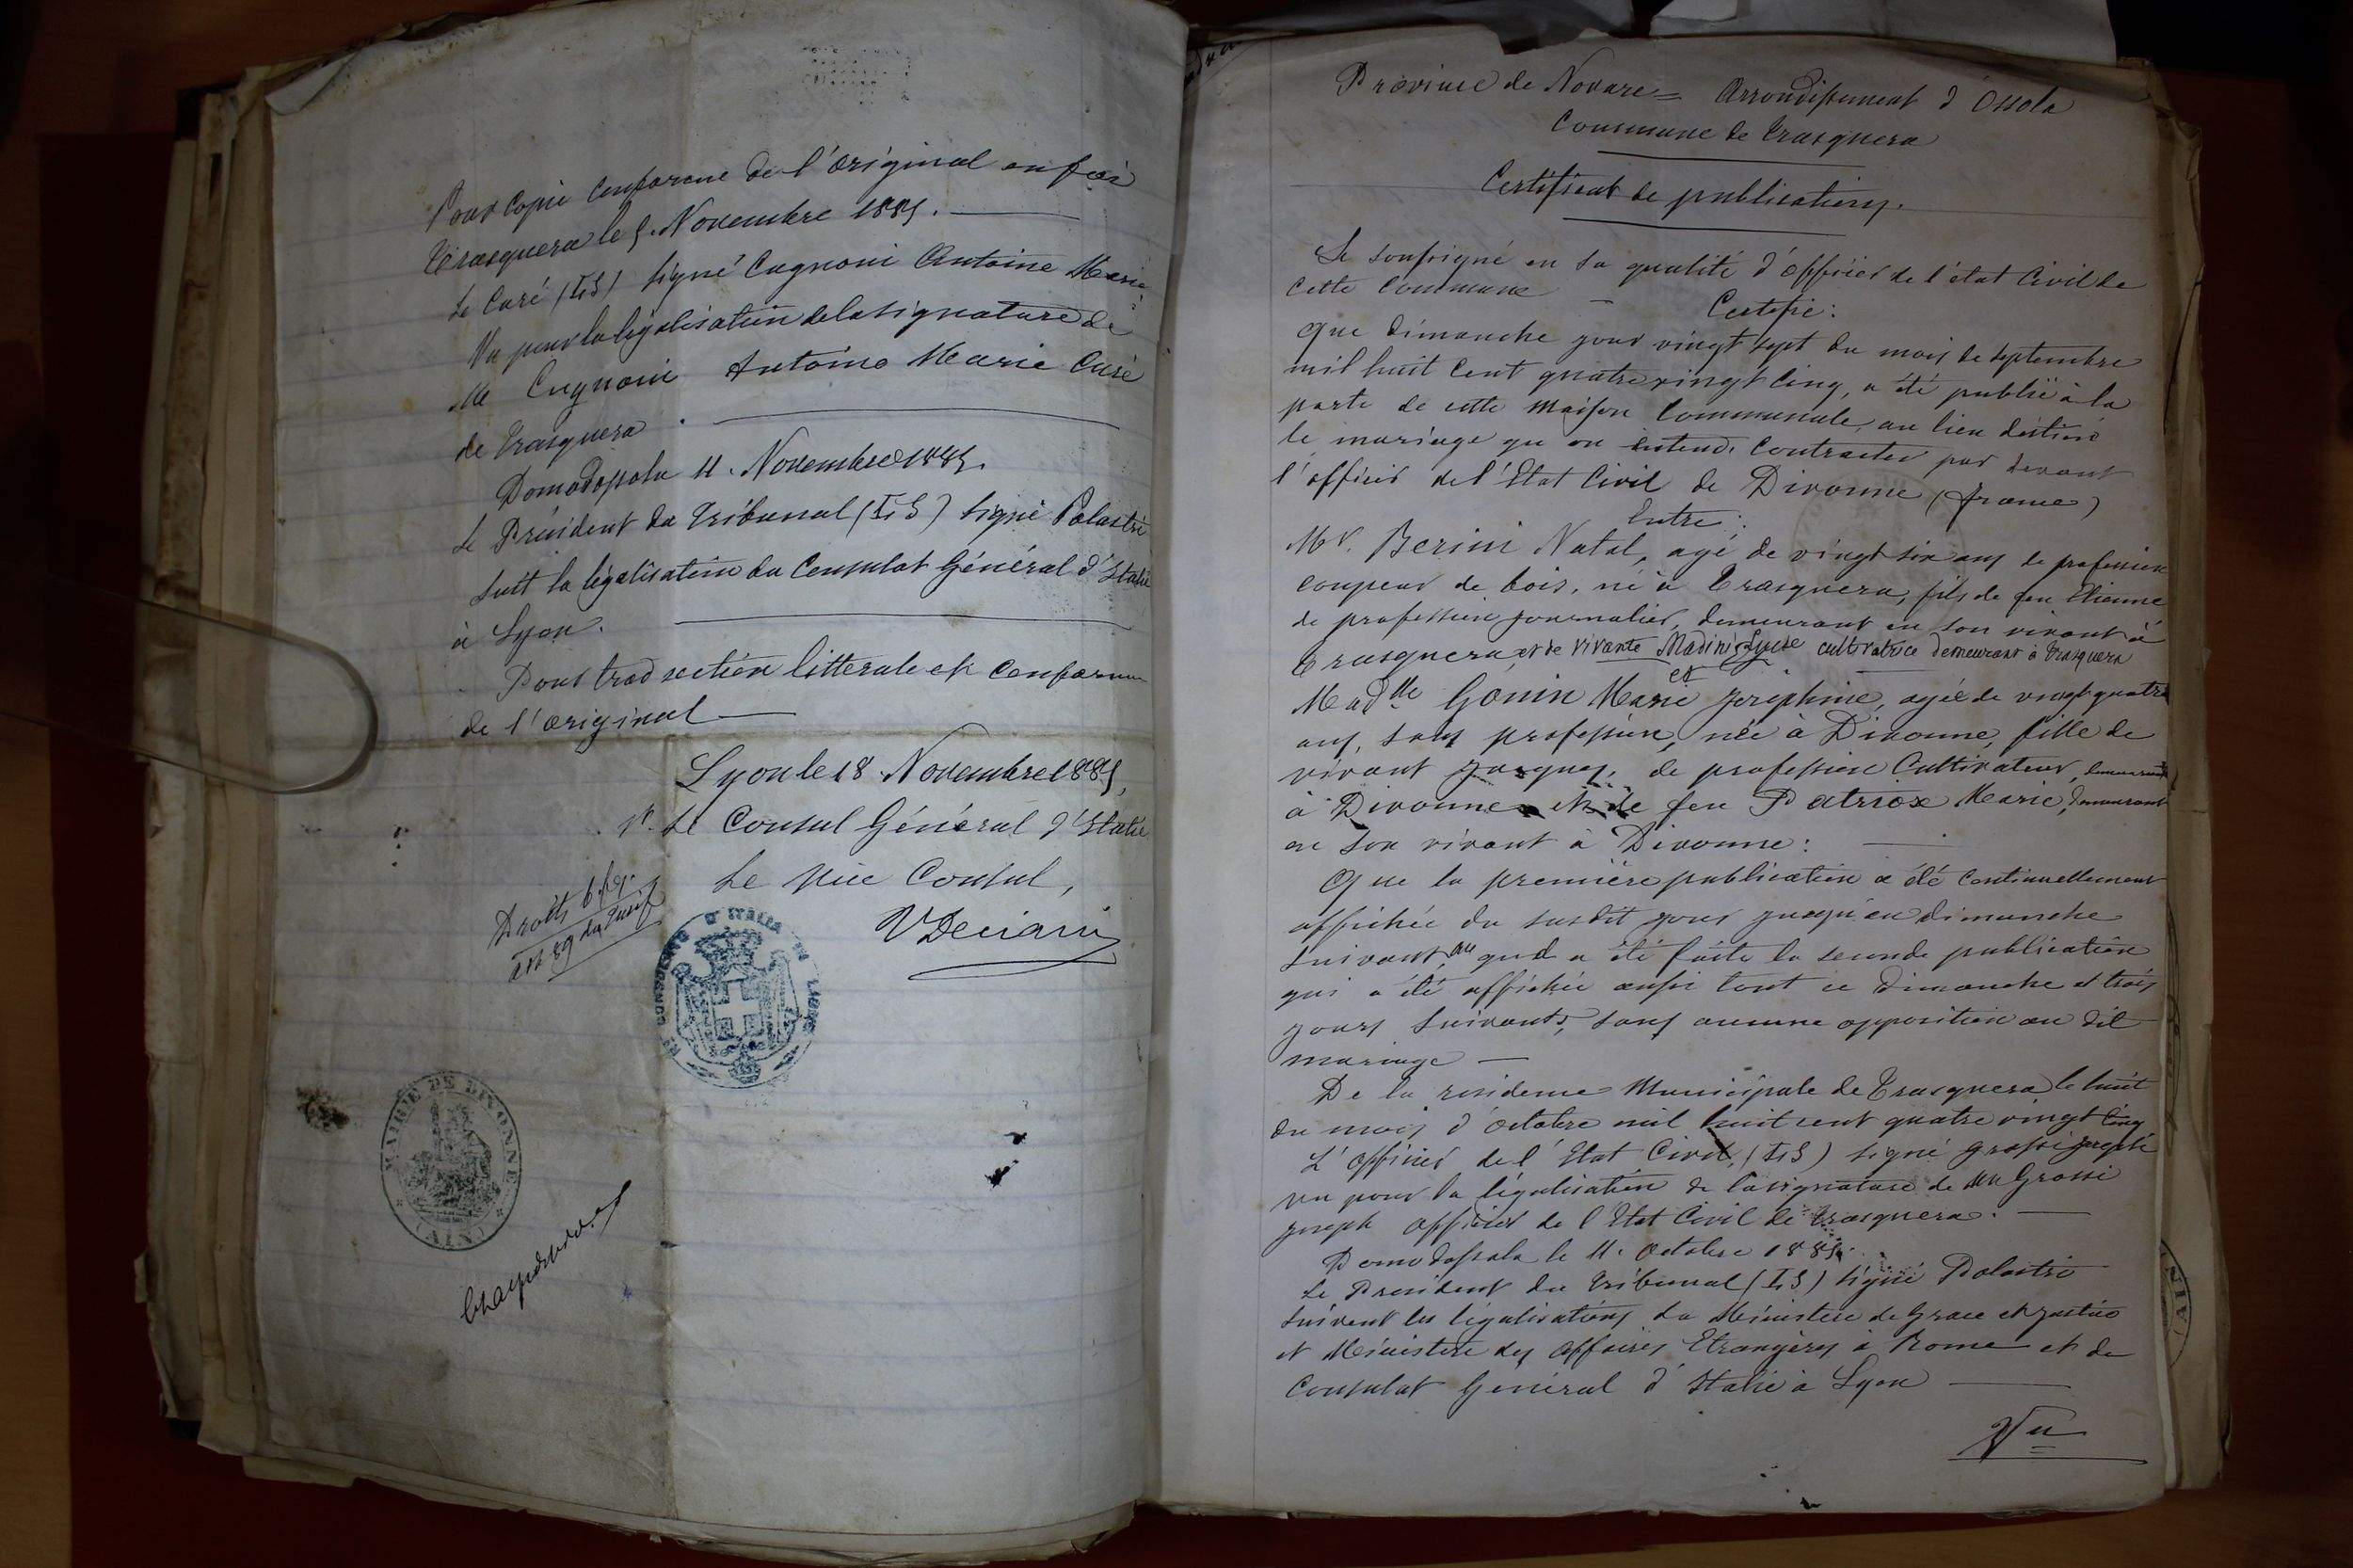 Pour Copie conforme de l'original en foi
Trasquera le 9. Novembre 1885.
Le Curé (L.S) signé Cugnoni Antoine Marie
Vu pour la légalisation de la signature de
Mr Cugnoni Antoine Marie Curé
de Trasquera.
Domodossola 11. Novembre 1885.
Le Président du Tribunal (L.S) signé Polastri
Suit la légalisation du Consulat Général d'Italie
à Lyon.
Pour traduction littérale et conforme
de l'original
Lyon le 18 Novembre 1885,
Pr. Le Consul Général d'Italie
Le Vice Consul,
Droits
art 89 du Tarif
R CONSOLATO D'ITALIA IN LIONE
MAIRIE DE DIVONNE
(AIN)
Province de Novare = Arrondissement d'Ossola
Commune de Trasquera
Certificat de publications.
Le soussigné en sa qualité d'officier de l'état Civil de
cette Commune
Certifie:
Que dimanche jour vingt sept du mois de septembre
mil huit cent quatre vingt cinq, a été publié à la
porte de cette Maison Communale, au lieu destiné
le mariage qu'on entend contracter par devant
l'officier de l'Etat Civil de Divonne (france)
Entre:
Mr. Berini Natal, agé de vingt six ans de profession
coupeur de bois, né à Trasquera, fils de feu Etienne
de profession journalier, demeurant en son vivant à
Trasquera et de vivante Madini Lucie cultivatrice demeurant à Trasquera
et
Madlle Gonin Marie Josephine, agée de vingt quatre
ans, sans profession, née à Divonne, fille de
vivant Jacques, de profession Cultivateur, demeurant
à Divonne et de feu Patrox Marie, demeurant
en son vivant à Divonne:
Que la première publication a été continuellement
affichée du susdit jour jusqu'au dimanche
suivant, au quel a été faite la seconde publication
qui a été affichée aussi tout ce Dimanche et trois
jours suivants, sans aucune opposition au dit
mariage
De la residence Municipale de Trasquera le huit
du mois d'octobre mil huit cent quatre vingt cinq
L'officier de l'Etat Civil, (L.S) signé Grossi Joseph
vu pour la légalisation de la signature de Mr Grossi
Joseph officier de l'Etat Civil de Trasquera.
Domodossola le 11. octobre 1885.
Le President du Tribunal (L.S) signé Polastri
Suivent les légalisations du Ministère de Grace et Justice
et Ministère des Affaires Etrangères à Rome et du
Consulat Général d'Italie à Lyon
Vu